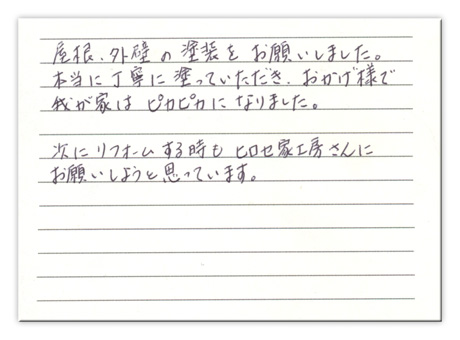 屋根、外壁の塗装をお願いしました。
本当に丁寧に塗っていただき、おかげ様で
我が家はピカピカになりました。
次にリフォームする時もヒロセ家工房さんに
お願いしようと思っています。